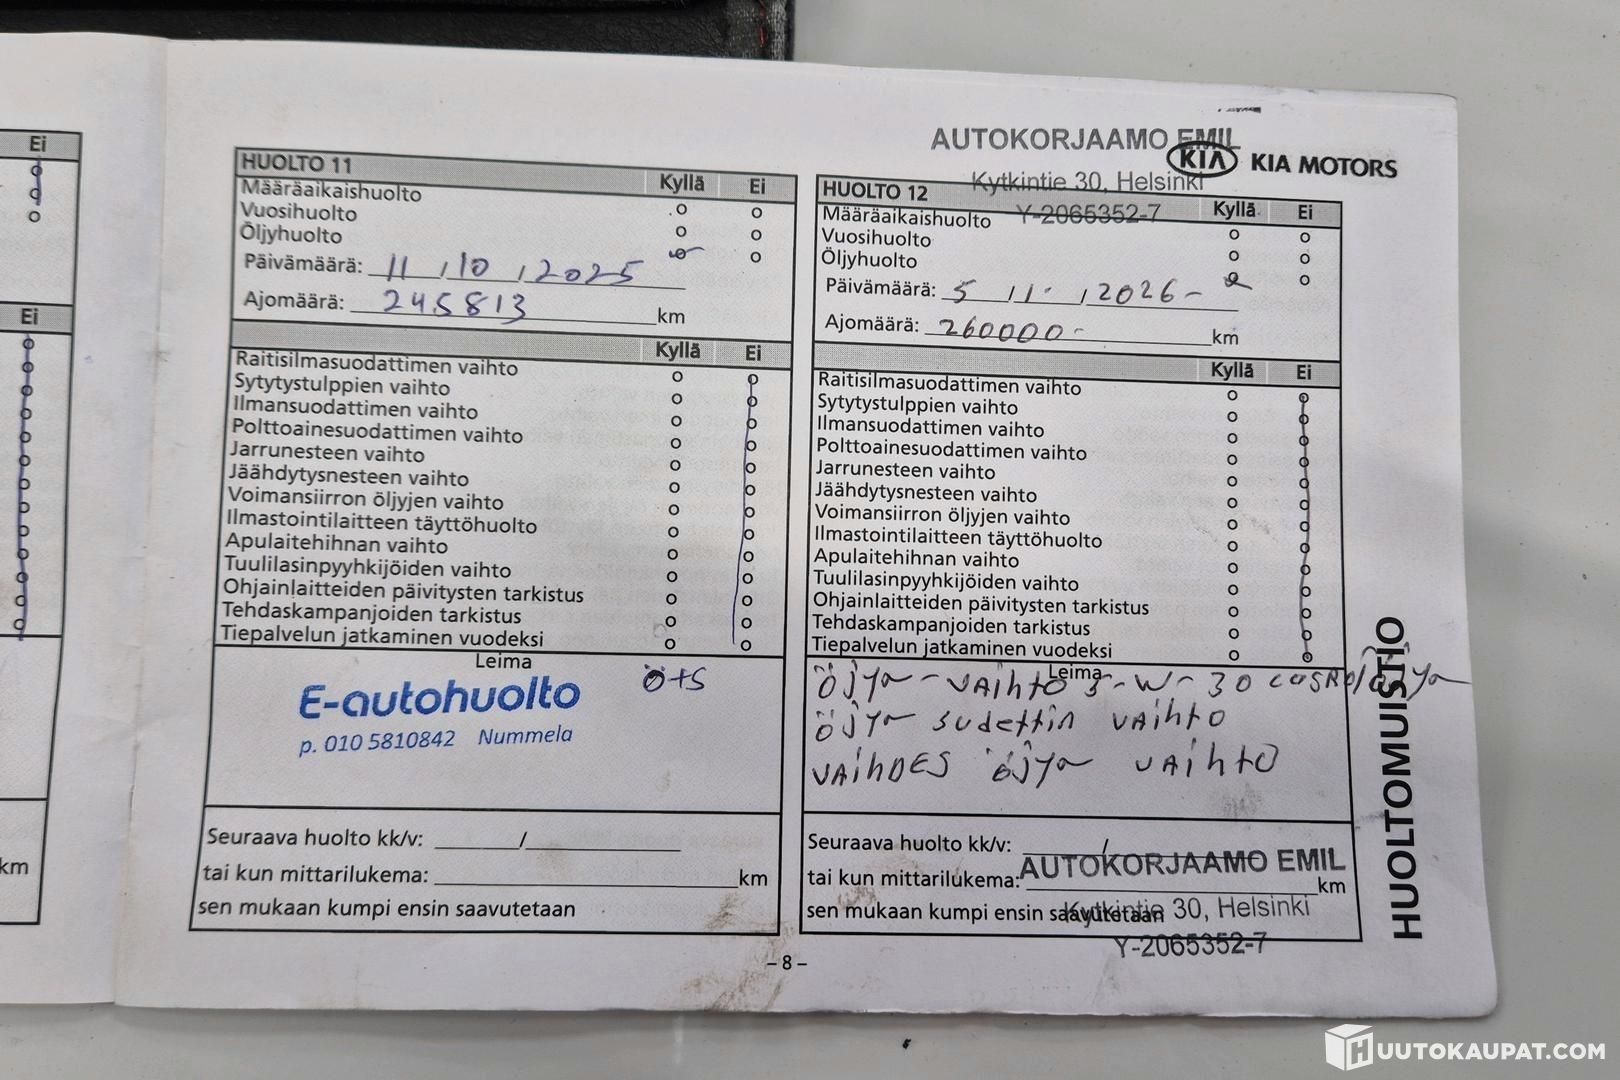 Ei
Ei
km
HUOLTO 11
Kyllä
Ei
Määräaikaishuolto
Vuosihuolto
Öljyhuolto
Päivämäärä: 11 / 10 , 2025
Ajomäärä: 245813 km
Kyllä
Ei
Raitisilmasuodattimen vaihto
Sytytystulppien vaihto
Ilmansuodattimen vaihto
Polttoainesuodattimen vaihto
Jarrunesteen vaihto
Jäähdytysnesteen vaihto
Voimansiirron öljyjen vaihto
Ilmastointilaitteen täyttöhuolto
Apulaitehihnan vaihto
Tuulilasinpyyhkijöiden vaihto
Ohjainlaitteiden päivitysten tarkistus
Tehdaskampanjoiden tarkistus
Tiepalvelun jatkaminen vuodeksi
Leima
Ö+S
E-autohuolto
p. 010 5810842 Nummela
Seuraava huolto kk/v: /
tai kun mittarilukema: km
sen mukaan kumpi ensin saavutetaan
AUTOKORJAAMO EMIL
KIA KIA MOTORS
Kytkintie 30, Helsinki
Y-2065352-7
HUOLTO 12
Kyllä
Ei
Määräaikaishuolto
Vuosihuolto
Öljyhuolto
Päivämäärä: 5 / 1 , 2026-
Ajomäärä: 260000- km
Kyllä
Ei
Raitisilmasuodattimen vaihto
Sytytystulppien vaihto
Ilmansuodattimen vaihto
Polttoainesuodattimen vaihto
Jarrunesteen vaihto
Jäähdytysnesteen vaihto
Voimansiirron öljyjen vaihto
Ilmastointilaitteen täyttöhuolto
Apulaitehihnan vaihto
Tuulilasinpyyhkijöiden vaihto
Ohjainlaitteiden päivitysten tarkistus
Tehdaskampanjoiden tarkistus
Tiepalvelun jatkaminen vuodeksi
Leima
öjya-vaihto 5-W-30
öjya sudettin vaihto
vaihdes öjya vaihto
Seuraava huolto kk/v: /
AUTOKORJAAMO EMIL
tai kun mittarilukema: km
sen mukaan kumpi ensin saavutetaan
Kytkintie 30, Helsinki
Y-2065352-7
HUOLTOMUISTIO
– 8 –
HUUTOKAUPAT.COM